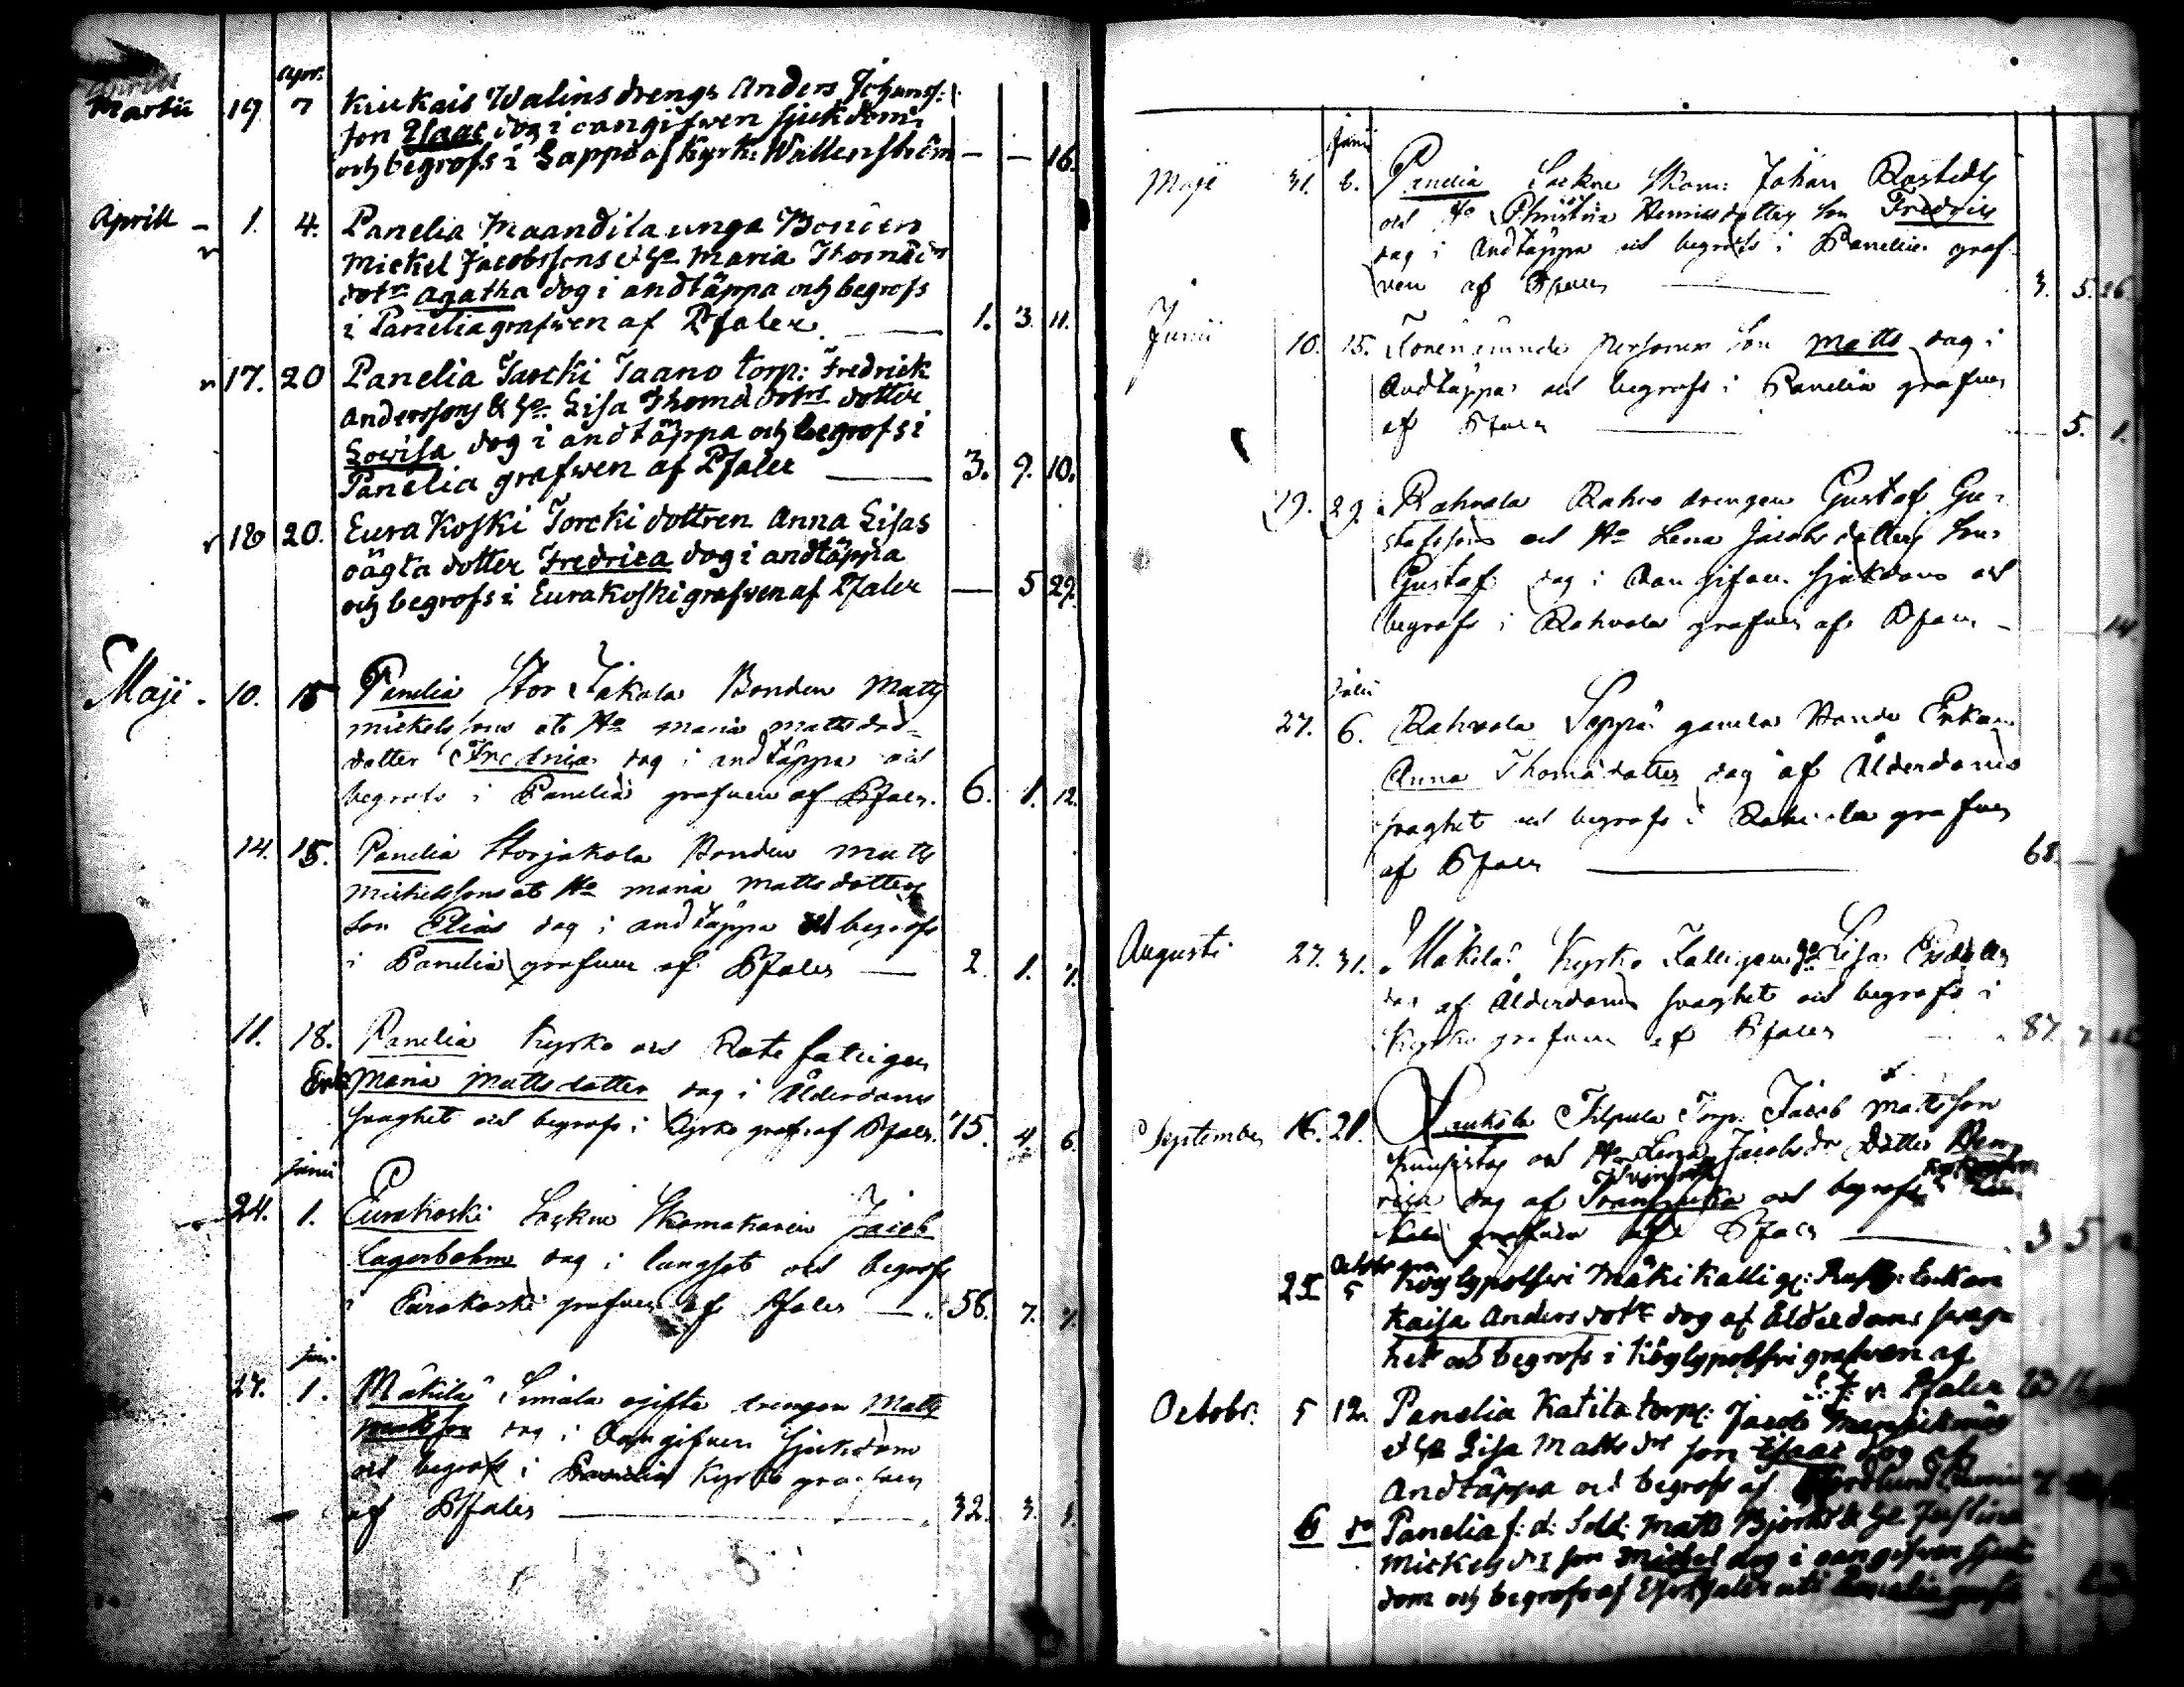 Apr:
Martii 19 7 Kiukais Walins drengs Anders Johanss:
son Isaac dog i oangifwen sjukdom
och begrofs i Lappo af Kyrk: Wallenström — — 16.
Aprill 1. 4. Panelia Maandila unga Bonden
Mickel Jacobssons & H:o Maria Thomæ
dotr Agatha dog i andtäppa och begrofs
i Panelia grafwen af Pfaler 1. 3. 11.
17. 20 Panelia Jaacki Jaano torp: Fredrick
Anderssons & H:o Lisa Thomæ dotrs dotter
Lowisa dog i andtäppa och begrofs i
Panelia grafwen af Pfaler 3. 9. 10.
18 20. Eura Koski Torcki dottren Anna Lisas
oägta dotter Fredrica dog i andtäppa
och begrofs i Eurakoski grafwen af Pfaler — 5 29.
Maji 10. 15 Panelia Stor Jakola Bonden Matts
Mickelssons et H:o Maria Mattsdotr
dotter Fredrica dog i andtäppa och
begrofs i Panelia grafwen af Pfaler. 6. 1. 12.
14. 15. Panelia Storjakola Bonden Matts
Mickelssons et H:o Maria Mattsdotters
Son Elias dog i andtäppa och begrofs
i Panelia grafwen af Pfaler — 2. 1.
11. 18. Panelia Kyrko och Rote fattigen
Enk: Maria Mattsdotter dog i Ålderdoms
swaghet och begrofs i Kyrko graf: af Pfaler. 75. 4. 6.
Junii
24. 1. Eurakoski Sockne Skomakaren Jacob
Lagerbohm dog i lungsot och begrofs
i Eurakoski grafwen af Pfaler — 56. 7.
Jun:
27. 1. Mäkilä Simala ogifta drengen Matts
Mattsson dog i Oangifwen Sjukdom
och begrofs i Kyrko grafwen
af Pfaler 32. 3.
Junii
Maji 31. 6. Panelia Sockne Skom: Johan Rostedts
och H:o Christina Henricsdotters Son Fredric
dog i Andtäppa och begrofs i Panelia graf
wen af Pfaler 3. 5. 26
Junii 10. 15. Förenämnde Personers Son Matts dog i
Andtäppa och begrofs i Panelia grafwen
af Pfaler 5. 1.
19. 29. Rahvola Rahvo drengen Gustaf Gu-
stafssons och H:o Lena Jacobsdotters Son
Gustaf dog i Oangifwen Sjukdom och
begrofs i Rahvola grafwen af Pfaler — 14
Julii
27. 6. Rahvola Seppä gamla Bonde Enkan
Anna Thomædotter dog af Ålderdoms
swaghet och begrofs i Rahvola grafwen
af Pfaler 68. —
Augusti 27. 31. Mäkilä Kyrko Fattigen Lisa
dog af Ålderdoms swaghet och begrofs i
Kyrko grafwen af Pfaler 87. 7
September 16. 21. Filpula Torp: Jacob Mattsson
och H:o Lena Jacobs dr dotter Hen-
rica dog af och begrofs
grafwen af Pfaler 3 5
Octobr
25 5 Köylypolfwi Mäki Kalli Enkan
Kaisa Anders dotr dog af Ålderdoms swag-
het och begrofs i Köylypolfwi grafwen af
Pfaler
Octobr. 5 12. Panelia Katila torp: Jacob
& H:o Lisa Matts dr son Isaac dog af
Andtäppa och begrofs af
6 do Panelia f: d: Sold: Matts Björks & H:o Justina
Mickels dr son Michel dog i oangifwen Sjuk
dom och begrofs af Pfaler uti Panelia grafw